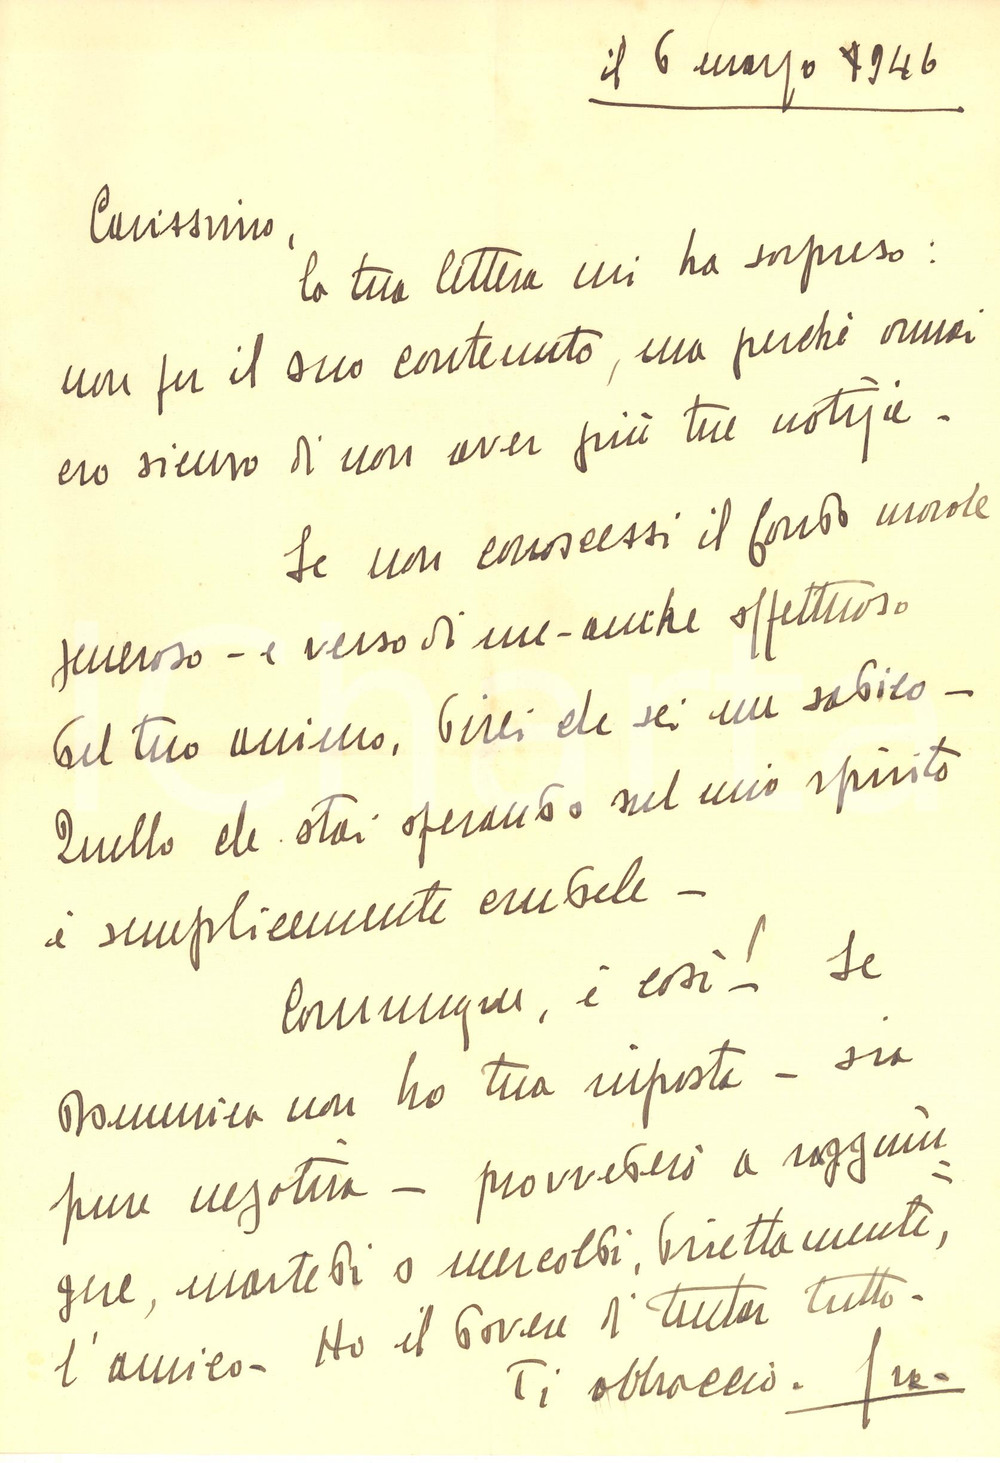 il 6 marzo 1946
Carissimo,
la tua lettera mi ha sorpreso:
non per il suo contenuto, ma perchè ormai
ero sicuro di non aver più tue notizie -
Se non conoscessi il fondo morale
generoso - e verso di me - anche affettuoso
del tuo animo, direi che sei un sadico -
Quello che stai operando sul mio spirito
è semplicemente crudele -
Comunque, è così! - Se
Domenica non ho tua risposta - sia
pure negativa - provvederò a raggiun=
gere, martedì o mercoldì, direttamente,
l'amico - Ho il dovere di tentar tutto -
Ti abbraccio.